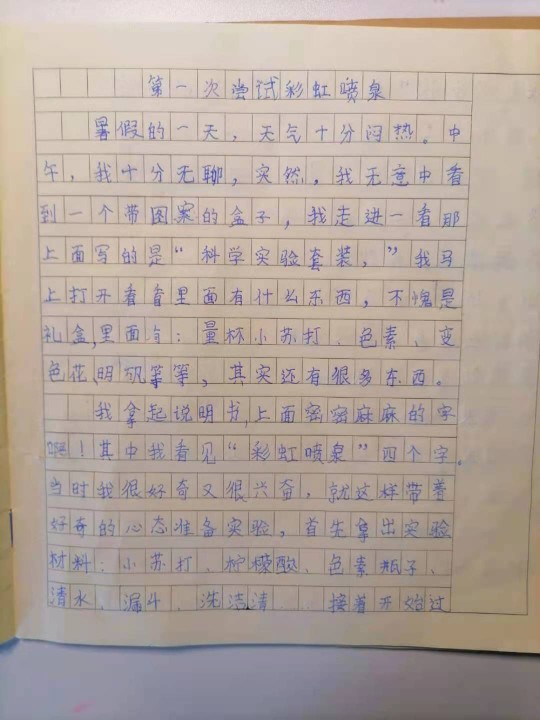 第一次尝试彩虹喷泉
暑假的一天，天气十分闷热。中
午，我十分无聊，突然，我无意中看
到一个带图案的盒子，我走进一看那
上面写的是“科学实验套装，”我马
上打开看看里面有什么东西，不愧是
礼盒，里面有：量杯小苏打、色素、变
色花、明矾等等，其实还有很多东西。
我拿起说明书，上面密密麻麻的字
啊！其中我看见“彩虹喷泉”四个字。
当时我很好奇又很兴奋，就这样带着
好奇的心态准备实验，首先拿出实验
材料：小苏打、柠檬酸、色素瓶子、
清水、漏斗、洗洁清 接着开始过